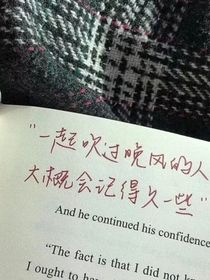 "一起吹过晚风的人
大概会记得久一些"
And he continued his confidence
"The fact is that I did not know
I ought to